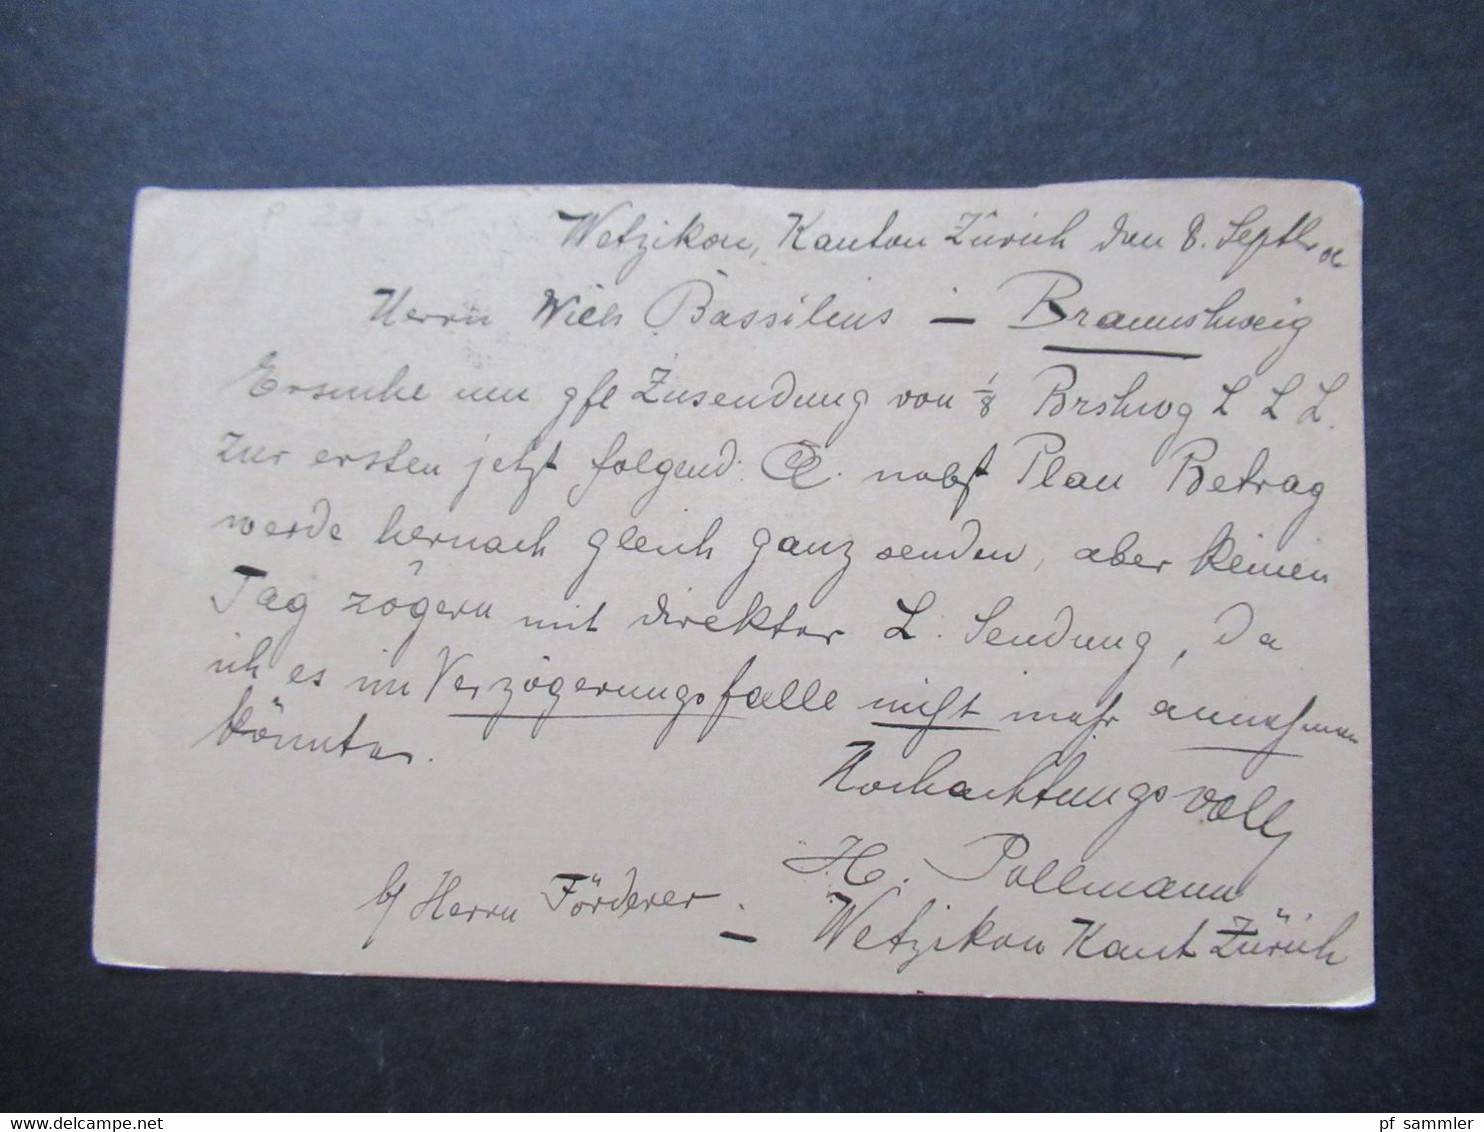 Wetzikon, Kanton Zürich den 8. Septbr
Herrn Wilh Bassilius – Braunschweig
Ersuche um gfl Zusendung von 1/8 Brschwg L L L.
zur ersten jetzt folgend. Cl. nebst Plan Betrag
werde hernach gleich ganz senden, aber keinen
Tag zögern mit direkter L. Sendung, da
ich es im Verzögerungsfalle nicht mehr annehmen
könnte.
Hochachtungsvoll
H. Pollmann
b/ Herrn Förderer. – Wetzikon Kant Zürich
www.delcampe.net
pf_sammler